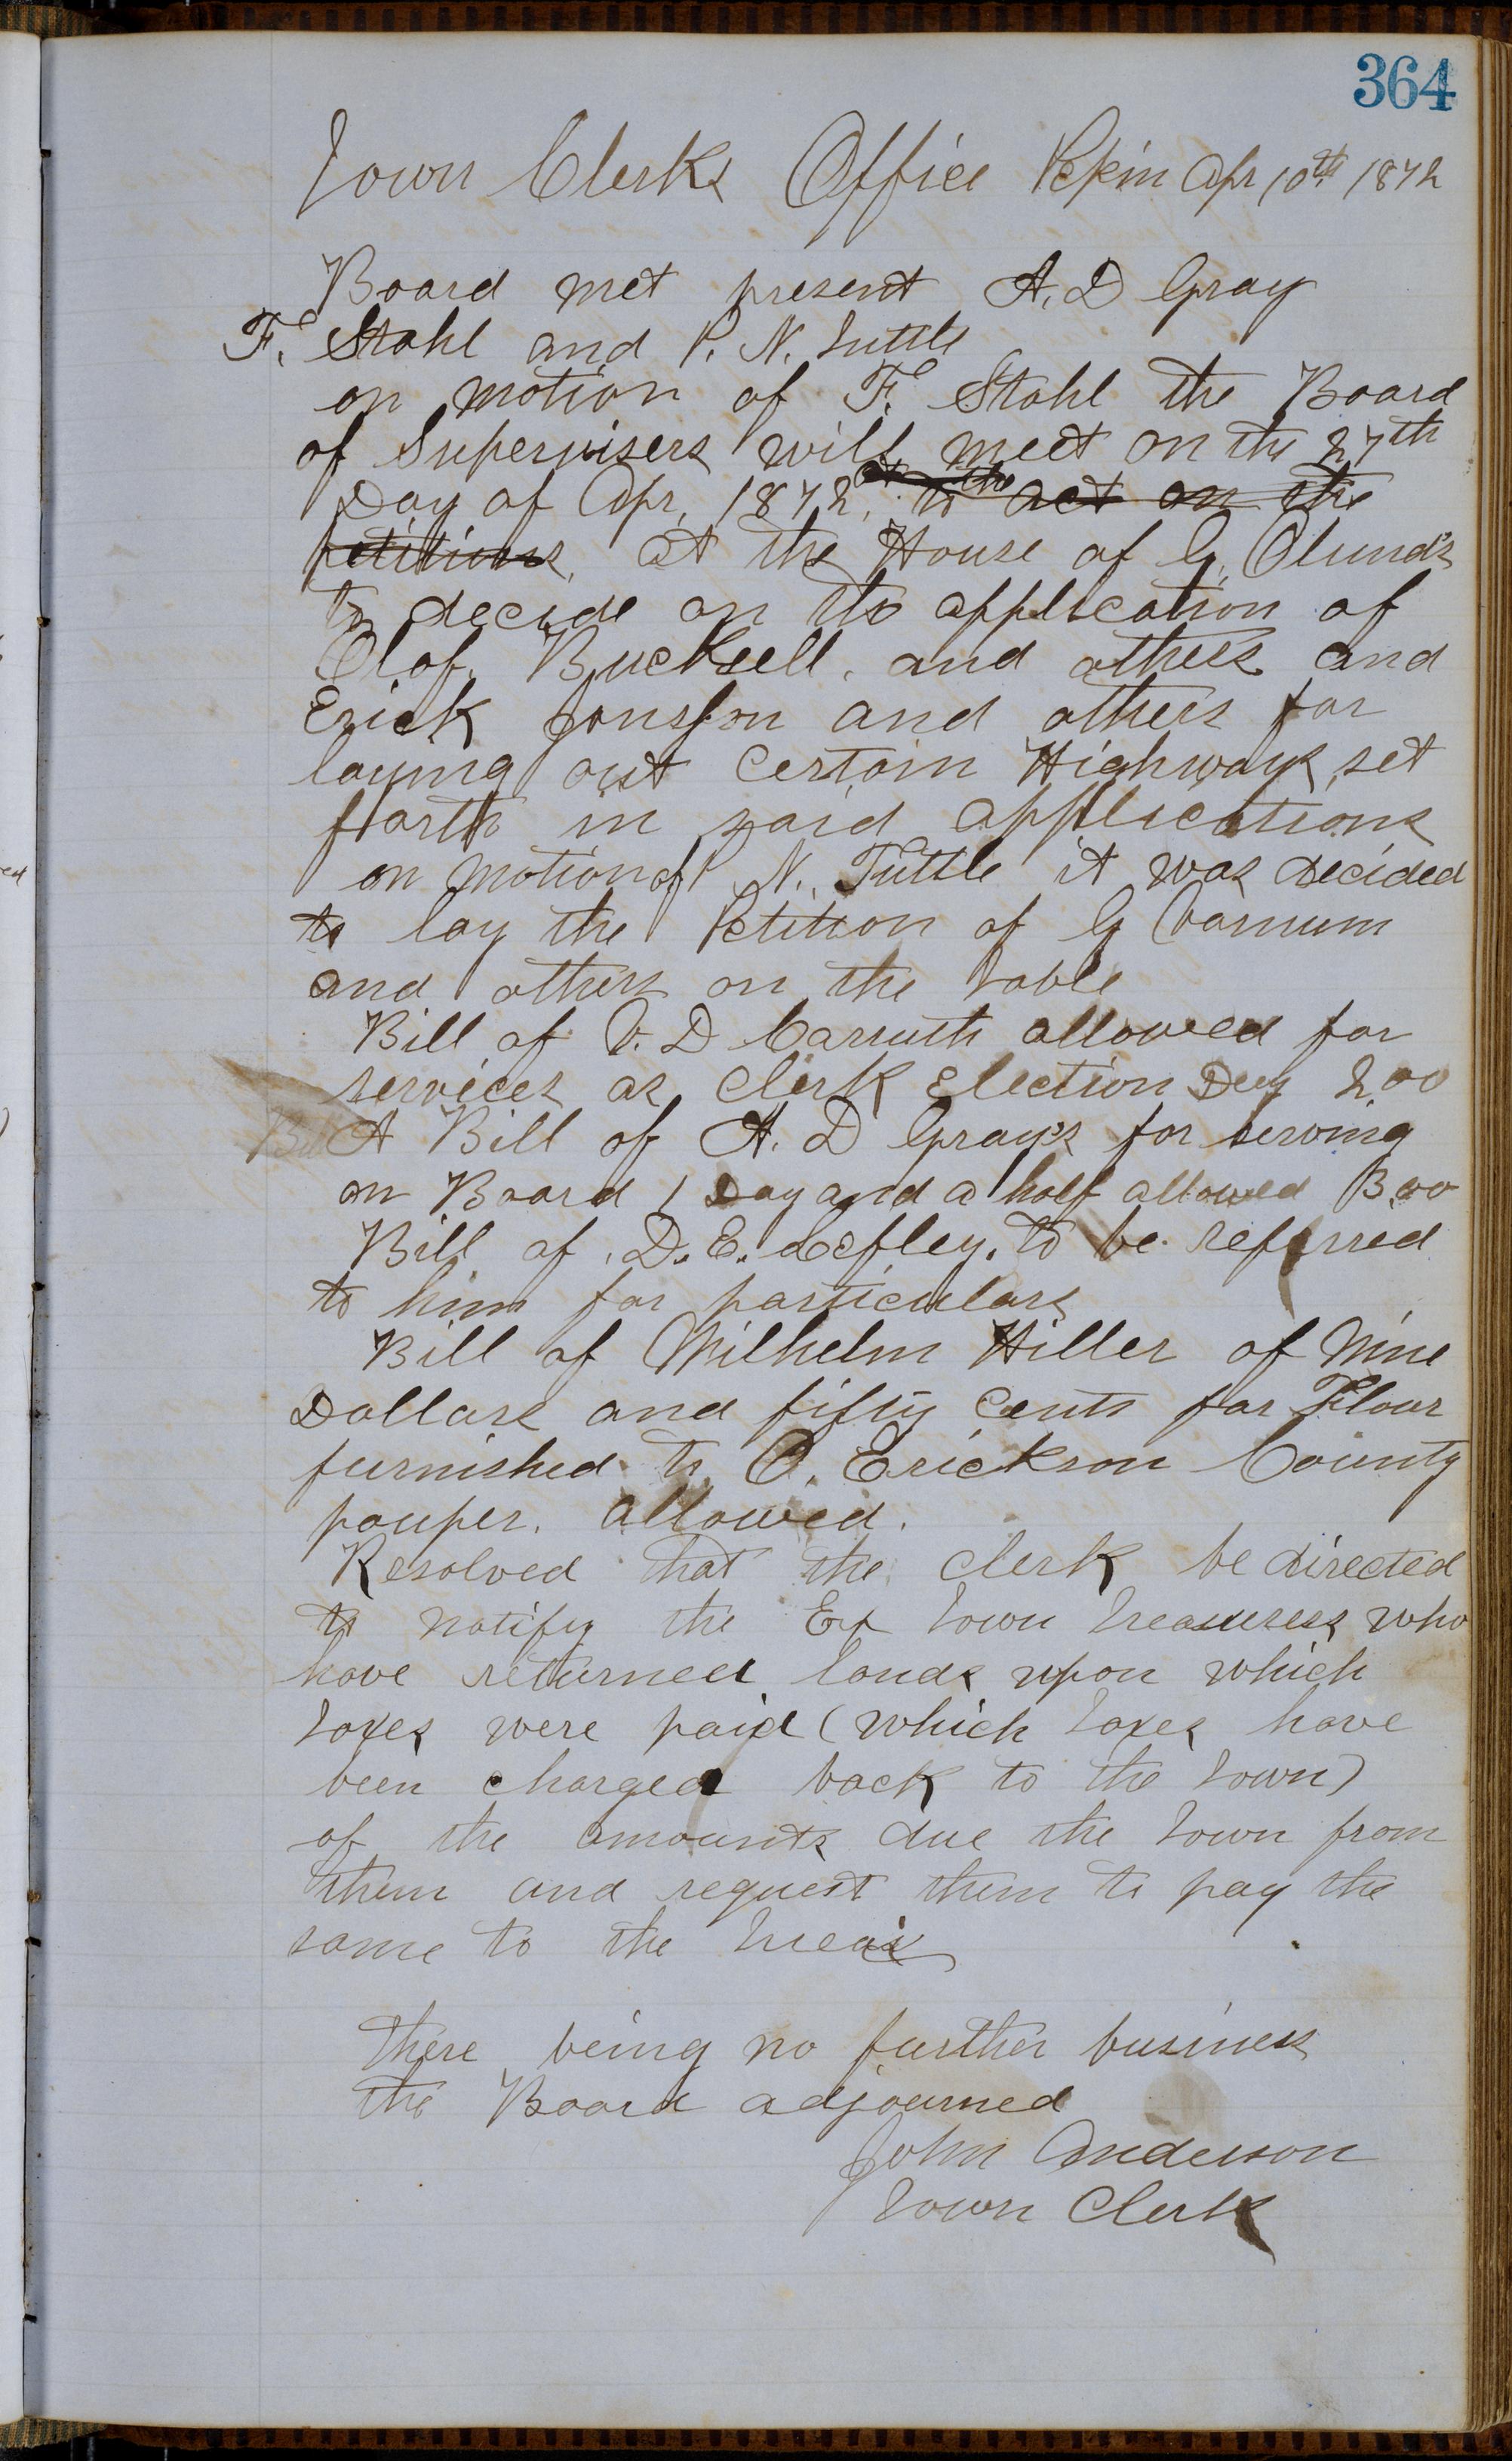 364
Town Clerks Office Pepin Apr 10th 1872
Board met present A. D Gray
F. Stahl and P. N. Tuttle
on motion of F. Stahl the Board
of Supervisers will meet on the 27th
at the
Day of Apr, 1872, to act on the
petitions, at the House of G. Olund's
to decide on the application of
Olof. Bucksell. and others and
Erick Jonsson and others for
laying out certain Highways set
forth in said applications
on motion of P N. Tuttle it was decided
to lay the Petition of G Varnum
and others on the table
Bill of V. D Carruth allowed for
services as Clerk Election Day 2.00
Bill A Bill of A. D Gray's for serving
on Board 1 Day and a half allowed 3.00
Bill of D. E. Lefley. to be referred
to him for particulars
Bill of Wilhelm Hiller of Nine
Dollars and fifty Cents for Flour
furnished to O. Erickson County
pauper. allowed.
Resolved that the clerk be directed
to notify the Ex Town Treasurers who
have returned lands upon which
taxes were paid (which taxes have
been charged back to the Town)
of the amounts due the Town from
them and request them to pay the
same to the Treas
there being no further business
the Board adjourned
John Anderson
Town Clerk